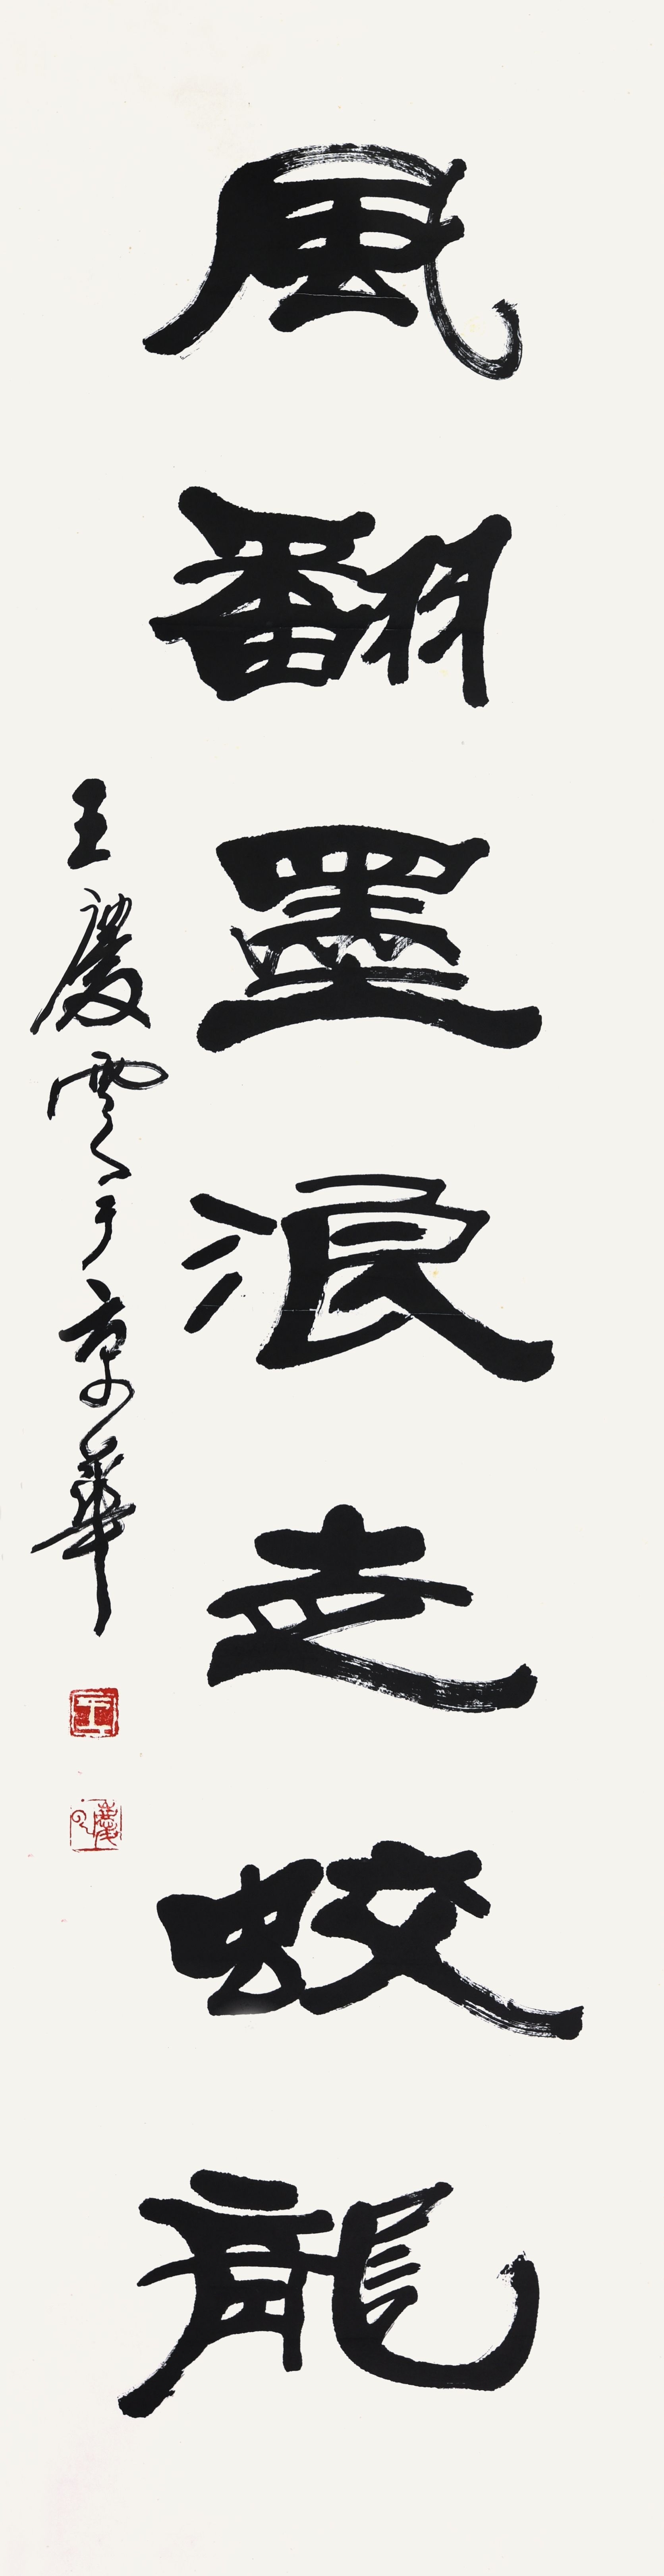 風翻墨浪走蛟龍
王慶雲于京華
王
慶雲